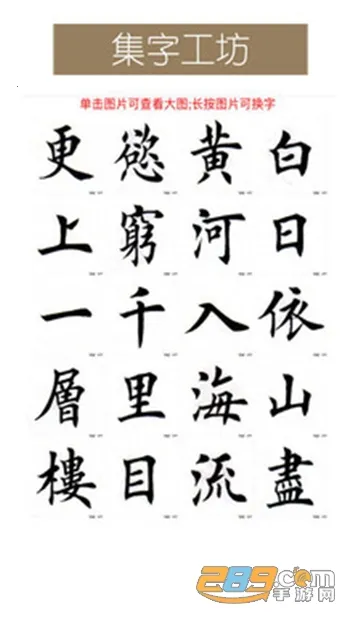 集字工坊
单击图片可查看大图;长按图片可换字
白日依山盡
黄河入海流
慾窮千里目
更上一層樓
289.com
手游网